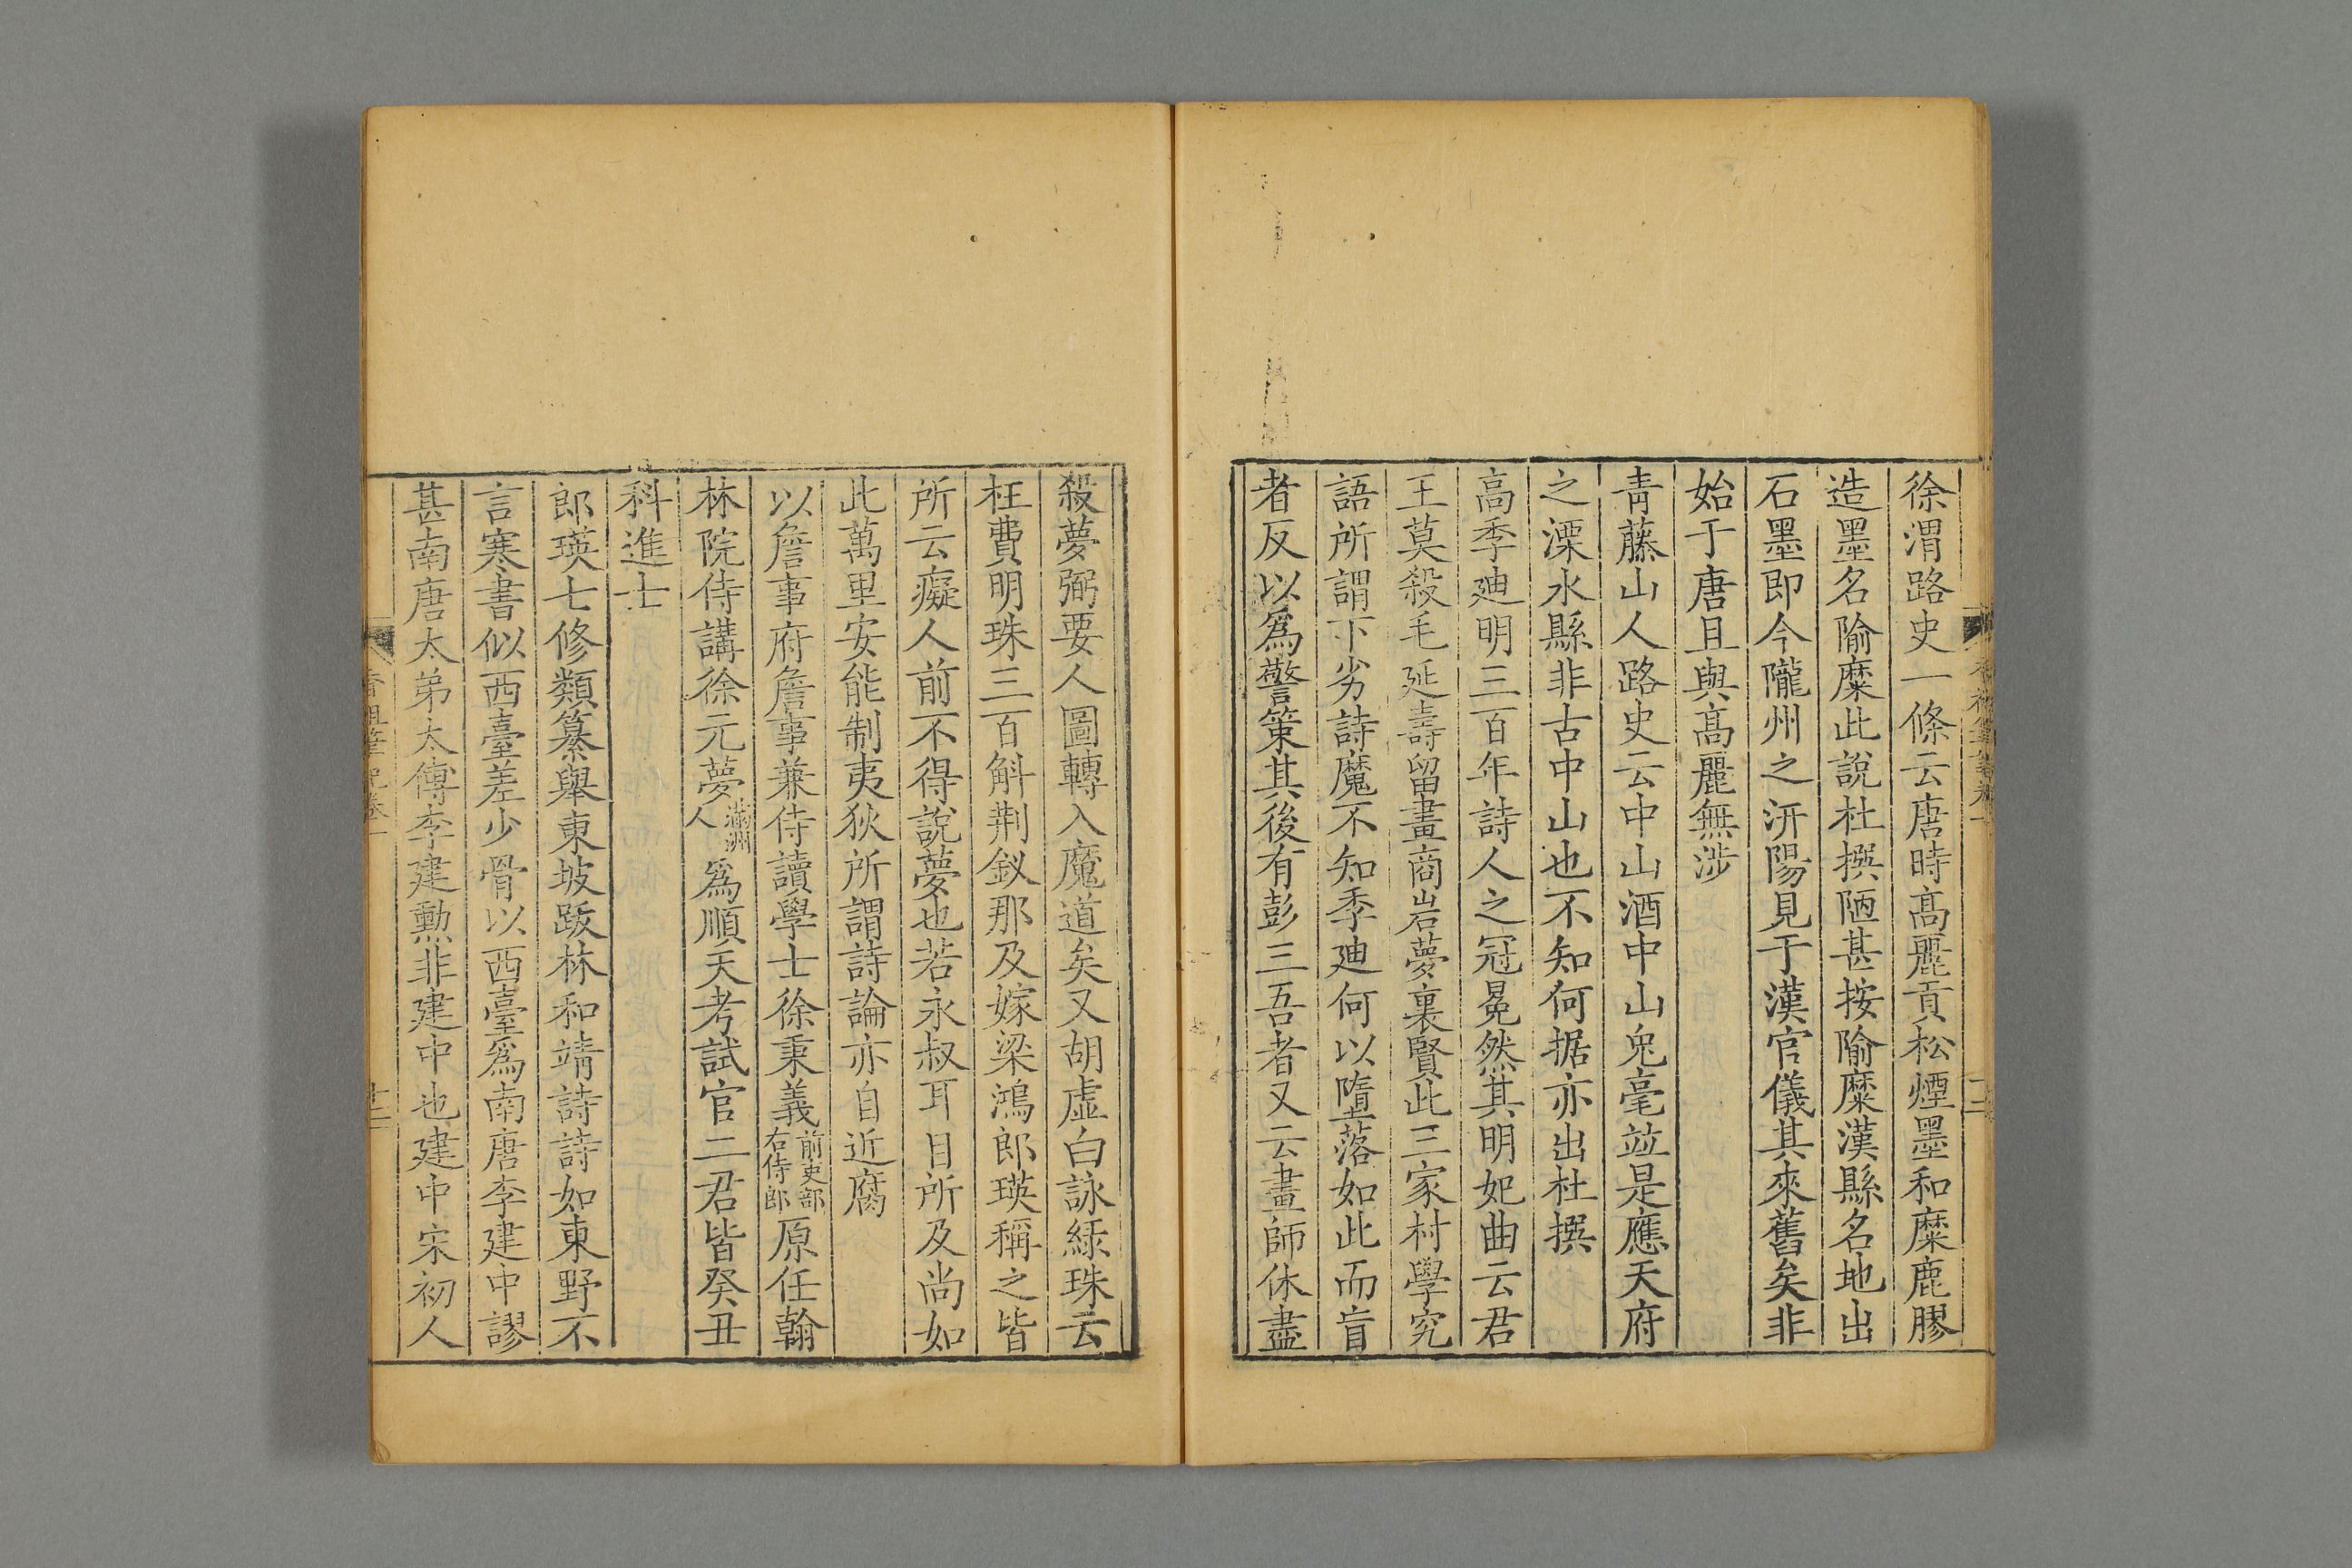 徐渭路史一條云唐時髙麗貢松煙墨和糜鹿膠
造墨名隃糜此說杜撰陋甚按隃糜漢縣名地出
石墨即今隴州之汧陽見于漢官儀其來舊矣非
始于唐且與髙麗無涉
青藤山人路史云中山酒中山兔毫竝是應天府
之溧水縣非古中山也不知何据亦出杜撰
高季廸明三百年詩人之冠冕然其明妃曲云君
王莫殺毛延壽留畫商岩夢裏賢此三家村學究
語所謂下劣詩魔不知季廸何以墮落如此而盲
者反以為警策其後有彭三吾者又云畫師休盡
殺夢弼要人圖轉入魔道矣又胡虛白詠綠珠云
枉費明珠三百斛荆釵那及嫁梁鴻郎瑛稱之皆
所云癡人前不得說夢也若永叔耳目所及尚如
此萬里安能制夷狄所謂詩論亦自近腐
以詹事府詹事兼侍讀學士徐秉義前吏部右侍郎原任翰
林院侍講徐元夢滿洲人為順天考試官二君皆癸丑
科進士
郎瑛七修類纂舉東坡跋林和靖詩詩如東野不
言寒書似西臺差少骨以西臺為南唐李建中謬
甚南唐太弟太傅李建勲非建中也建中宋初人
香祖筆記卷一
十二